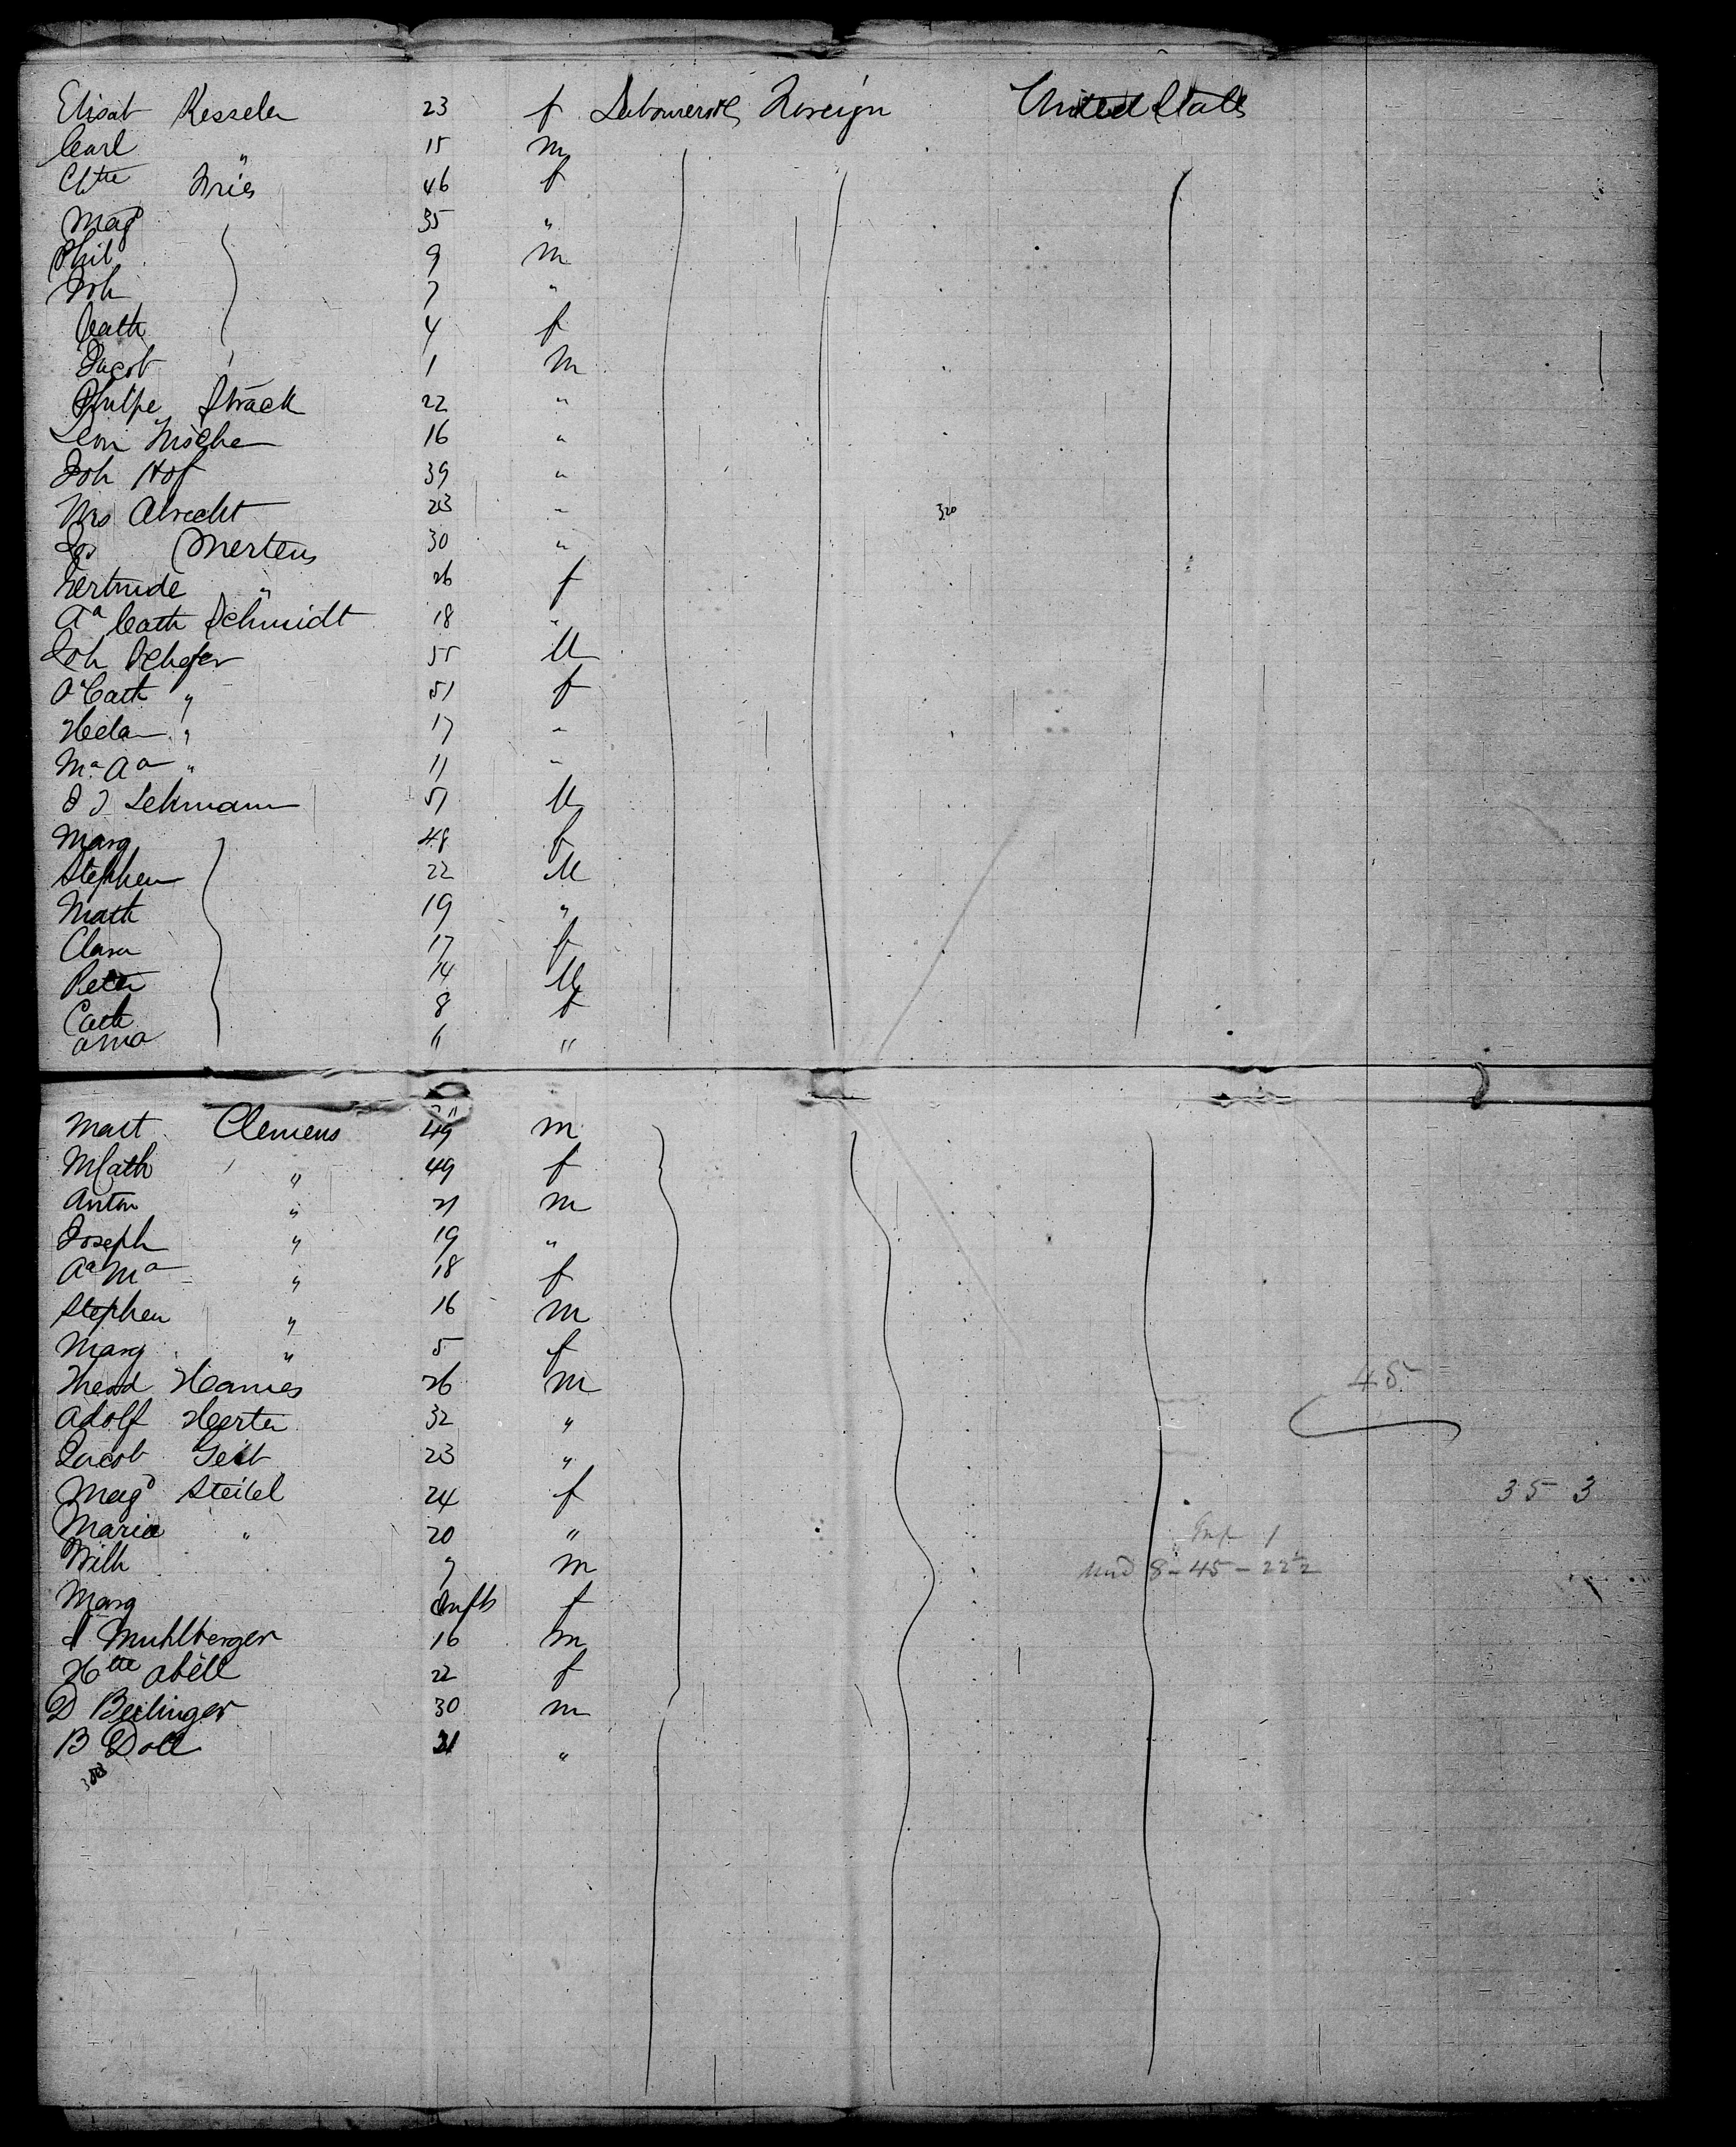 Elisab Kesseler 23 f Labourers &c Foreign United States
Carl " 15 m
Chtte Fries 46 f
Magd 35 "
Phil 9 m
Joh 7 "
Cath 4 f
Jacob 1 m
Philpe Strack 22 "
Leon 16 "
Joh Hof 39 "
Ns Abrecht 23 "
Jos Mertens 30 "
Gertrude " 26 f
Aa Cath Schmidt 18 "
Joh Schefer 55 M
Aa Cath " 51 f
Helen " 17 "
Ma Aa " 11 "
J J Lehmann 51 M
Marg 48 f
Stephen 22 M
Math 19 "
Clara 17 f
Peter 14 M
Cath 8 f
Anna " "
320
Matt Clemens 49 m
M Cath " 49 f
Anton " 21 m
Joseph " 19 "
Aa Ma " 18 f
Stephen " 16 m
Marg " 5 f
Theod Hames 26 m
45
Adolf Herter 32 "
Jacob Geib 23 "
Magd Steibel 24 f
35 3
Maria " 20 "
Inf 1
Wilh 7 m
und 8-45-22½
Marg Infts f
Muhlberger 16 m
Htte Abell 22 f
D Beilinger 30 m
B Doll 31 "